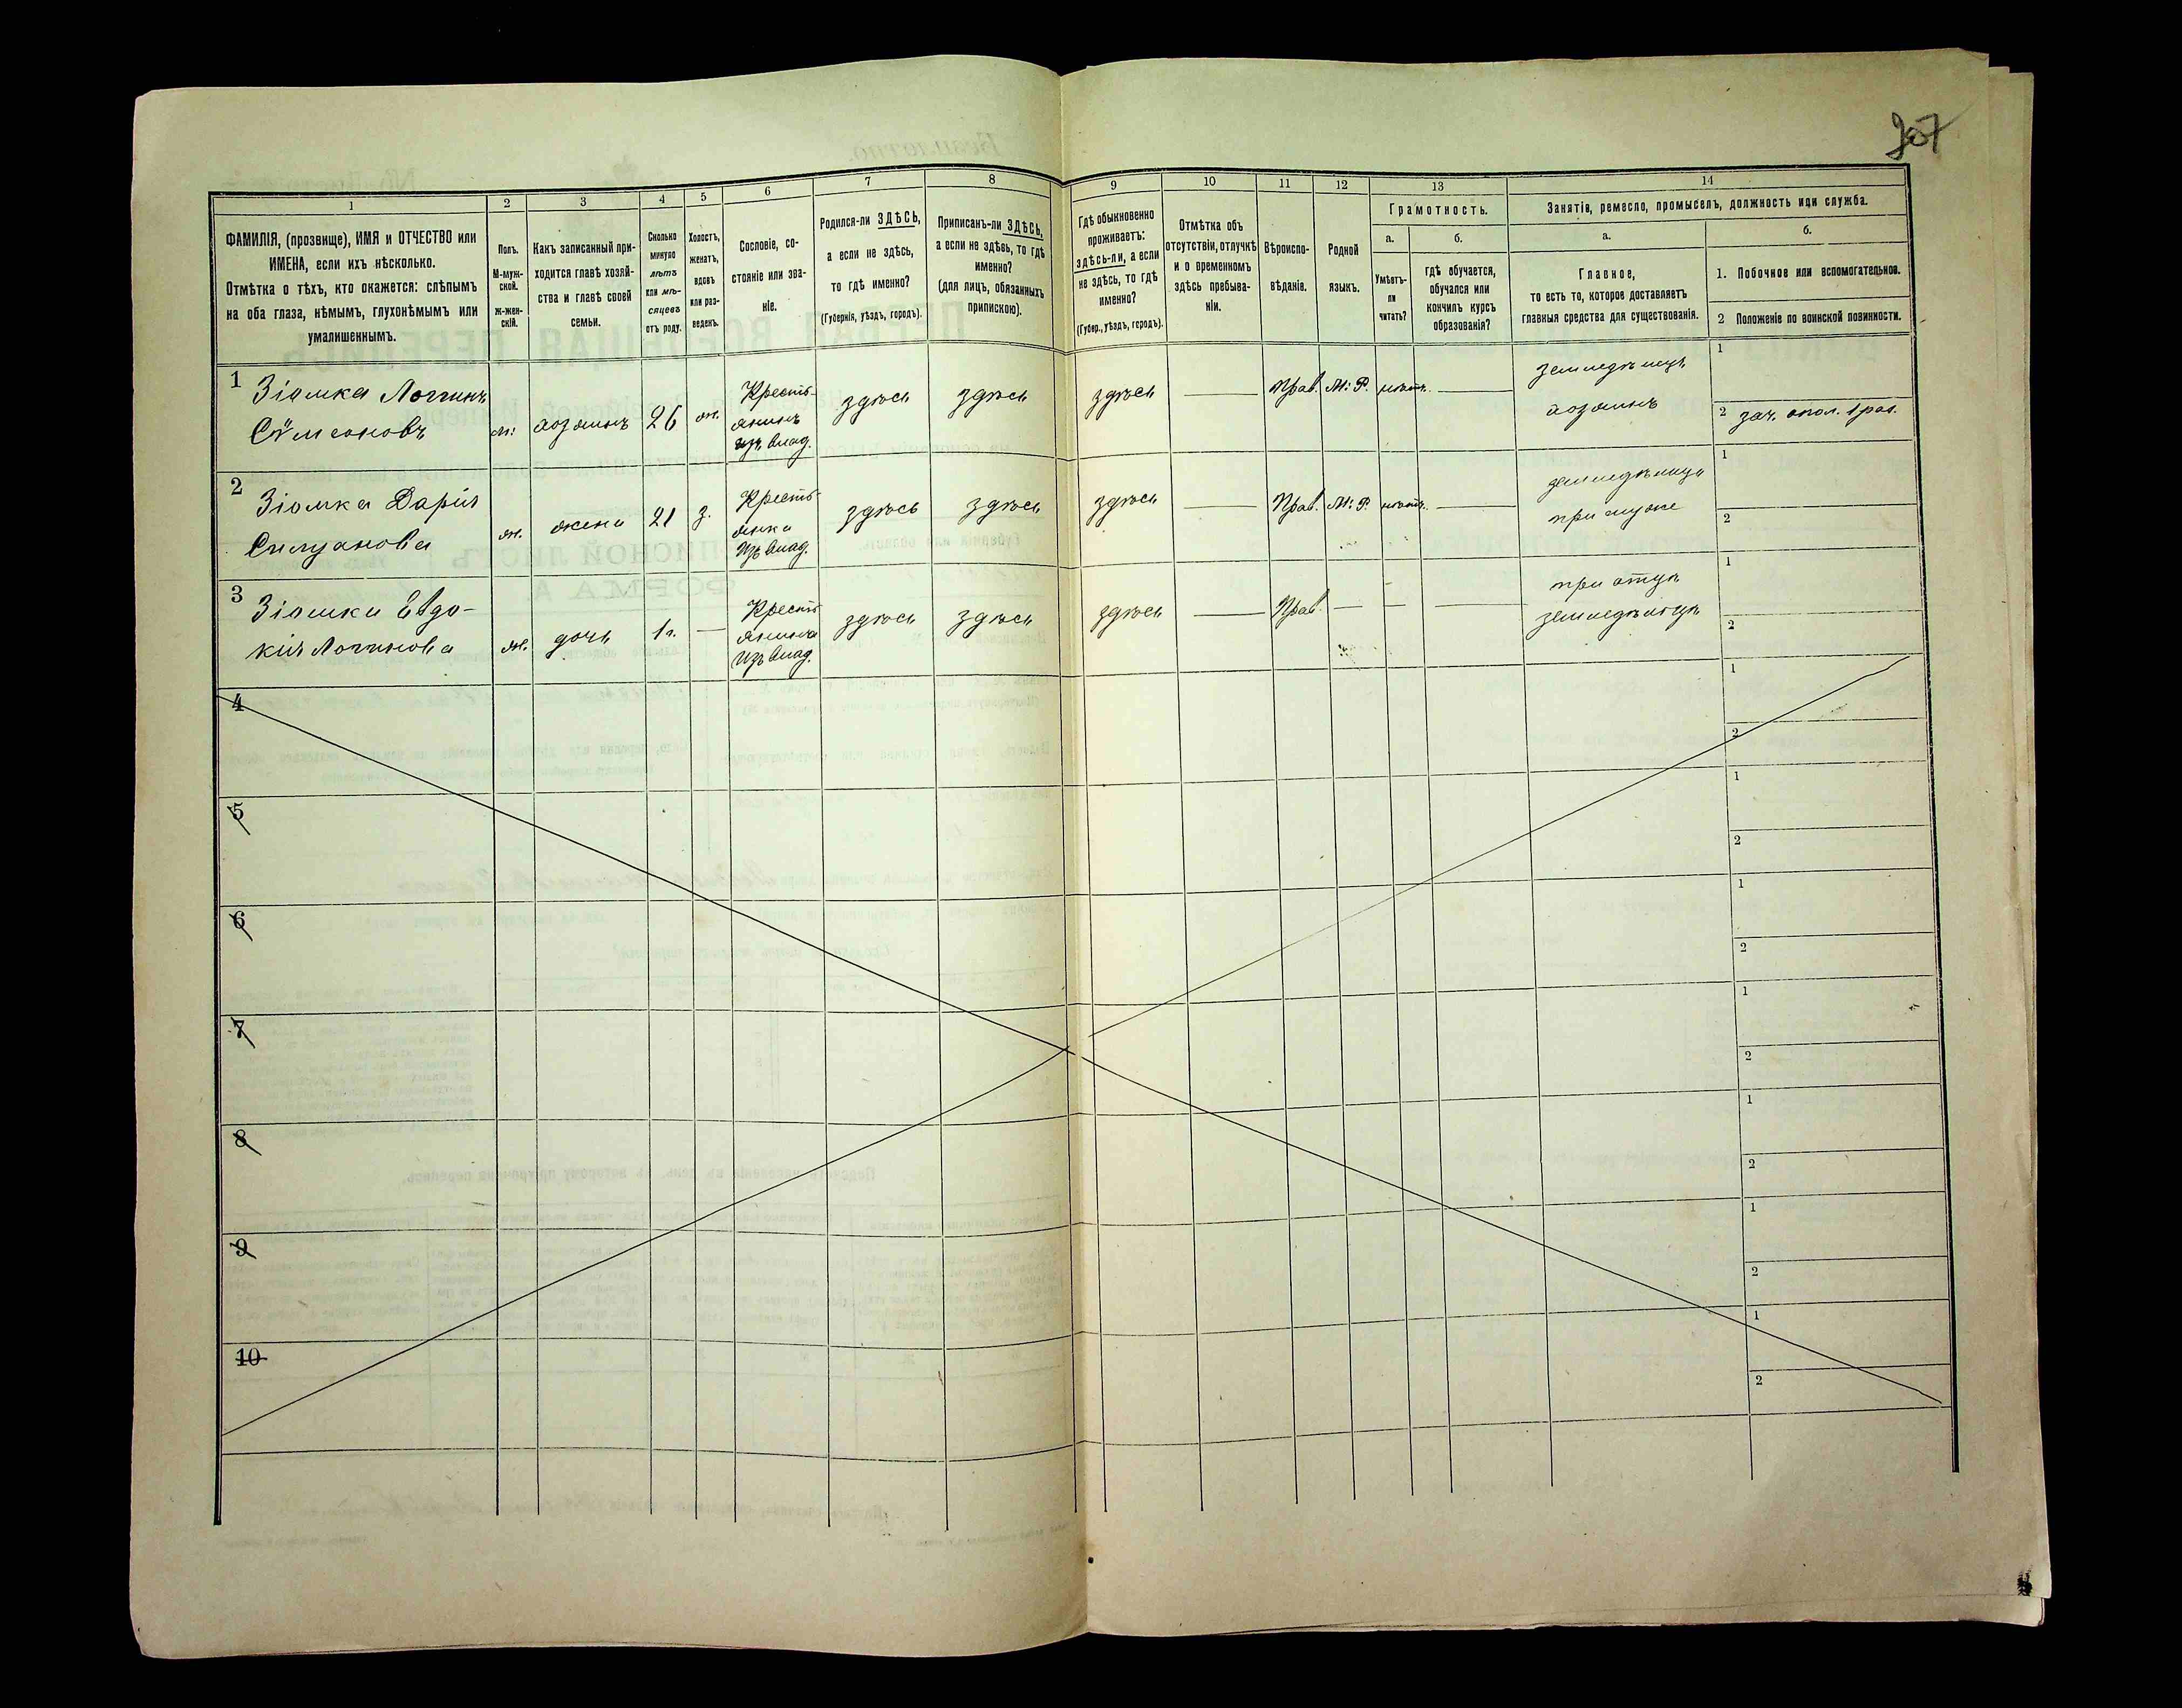 207
1
2
3
4
5
6
7
8
9
10
11
12
13
14
ФАМИЛІЯ, (прозвище), ИМЯ и ОТЧЕСТВО или
ИМЕНА, если ихъ нѣсколько.
Отмѣтка о тѣхъ, кто окажется: слѣпымъ
на оба глаза, нѣмымъ, глухонѣмымъ или
умалишеннымъ.
Полъ.
М-муж-
ской.
Ж-жен-
скій.
Какъ записанный при-
ходится главѣ хозяй-
ства и главѣ своей
семьи.
Сколько
минуло
лѣтъ
или мѣ-
сяцевъ
отъ роду.
Холостъ,
женатъ,
вдовъ
или раз-
веденъ.
Сословіе, со-
стояніе или зва-
ніе.
Родился-ли ЗДѢСЬ,
а если не здѣсь,
то гдѣ именно?
(Губернія, уѣздъ, городъ).
Приписанъ-ли ЗДѢСЬ,
а если не здѣсь, то гдѣ
именно?
(для лицъ, обязанныхъ
припискою).
Гдѣ обыкновенно
проживаетъ:
здѣсь-ли, а если
не здѣсь, то гдѣ
именно?
(Губер., уѣздъ, городъ).
Отмѣтка объ
отсутствіи, отлучкѣ
и о временномъ
здѣсь пребыва-
ніи.
Вѣроиспо-
вѣданіе.
Родной
языкъ.
Грамотность.
а.
Умѣетъ-
ли
читать?
б.
гдѣ обучается,
обучался или
кончилъ курсъ
образованія?
Занятіе, ремесло, промыселъ, должность или служба.
а.
Главное,
то есть то, которое доставляетъ
главныя средства для существованія.
б.
1. Побочное или вспомогательное.
2 Положеніе по воинской повинности.
1 Зіомка Логгинъ
Сѵмеоновъ
м: хозяинъ 26 ж. Кресть-
янинъ
изъ влад.
здѣсь здѣсь здѣсь — Прав. М: Р. нѣтъ. —
земледѣлецъ
хозяинъ
1
2 зач. опол. 1 раз.
2 Зіомка Дарія
Силуанова
ж. жена 21 з. Кресть-
янка
изъ влад.
здѣсь здѣсь здѣсь — Прав. М: Р. нѣтъ. —
земледѣлица
при мужѣ
1
2
3 Зіомка Евдо-
кія Логинова
ж. дочь 1 г. — Кресть
янинка
изъ влад.
здѣсь здѣсь здѣсь — Прав. — — —
при отцѣ
земледѣльцѣ
1
2
4
1
2
5
1
2
6
1
2
7
1
2
8
1
2
9
1
2
10
1
2